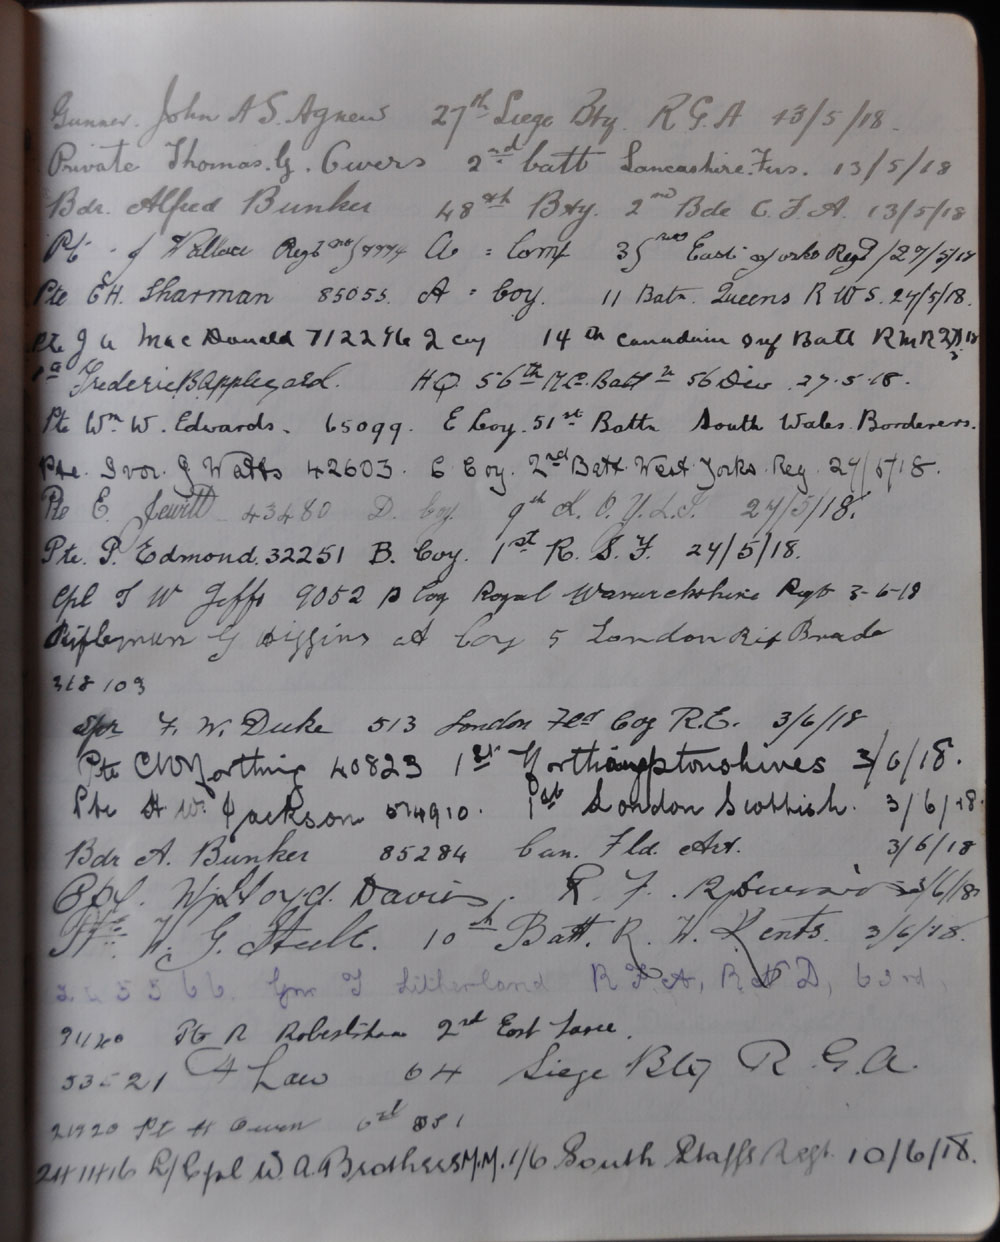 Gunner. John A S. Agnew 27th Siege Bty. R G. A 13/5/18.
Private Thomas. G. Owers 2nd batt Lancashire. Fus. 13/5/18
Bdr. Alfred Bunker 48th Bty. 2nd Bde C. F. A. 13/5/18
Pte J Wallace Regt no A = Comp East Yorks Regt 27/5/18
Pte E H. Sharman 85055. A = Coy. 11 Batn. Queens R W S. 27/5/18.
Pte J A Mac Donald 712296 2 coy 14 th canadian Inf Batt R M R
Frederic B. Appleyard. H Q 56th M. C. Batt n 56 Div. 27-5-18.
Pte Wm W. Edwards. 65099. E Coy. 51st Battn South Wales Borderers.
Pte. Ivor. J Watts 42603. C Coy. 2nd Batt West Yorks. Reg. 27/5/18.
Pte E. Jewitt 43480 D. Coy. 9th K. O. Y. L. I. 27/5/18.
Pte. P. Edmond. 32251 B. Coy. 1st R. S. F. 27/5/18.
Cpl T W Jeffs 9052 B Coy Royal Warwickshire Regt 3-6-18
Rifleman G Higgins A Coy 5 London Rif Brade
318103
Spr F. W. Duke 513 London Fld Coy R. E. 3/6/18
Pte C W Worthing 40823 1st Northamptonshires 3/6/18.
Pte H W. Jackson 514910. 1st London Scottish. 3/6/18
Bdr A. Bunker 85284 Can. Fld. Art. 3/6/18
Cpl. W. Lloyd. Davies, R. F. 3/6/18
Pte. W. G. Steele. 10th Batt. R. W. Kents. 3/6/18.
Gnr T Litherland R. F. A, R N D, 63rd,
Pte R 2nd East Lancs.
53521 A Law 64 Siege Bty R. G. A.
21920 Pt H Owen
241416 L/Cpl W. A. Brothers M. M. 1/6 South Staffs Regt. 10/6/18.